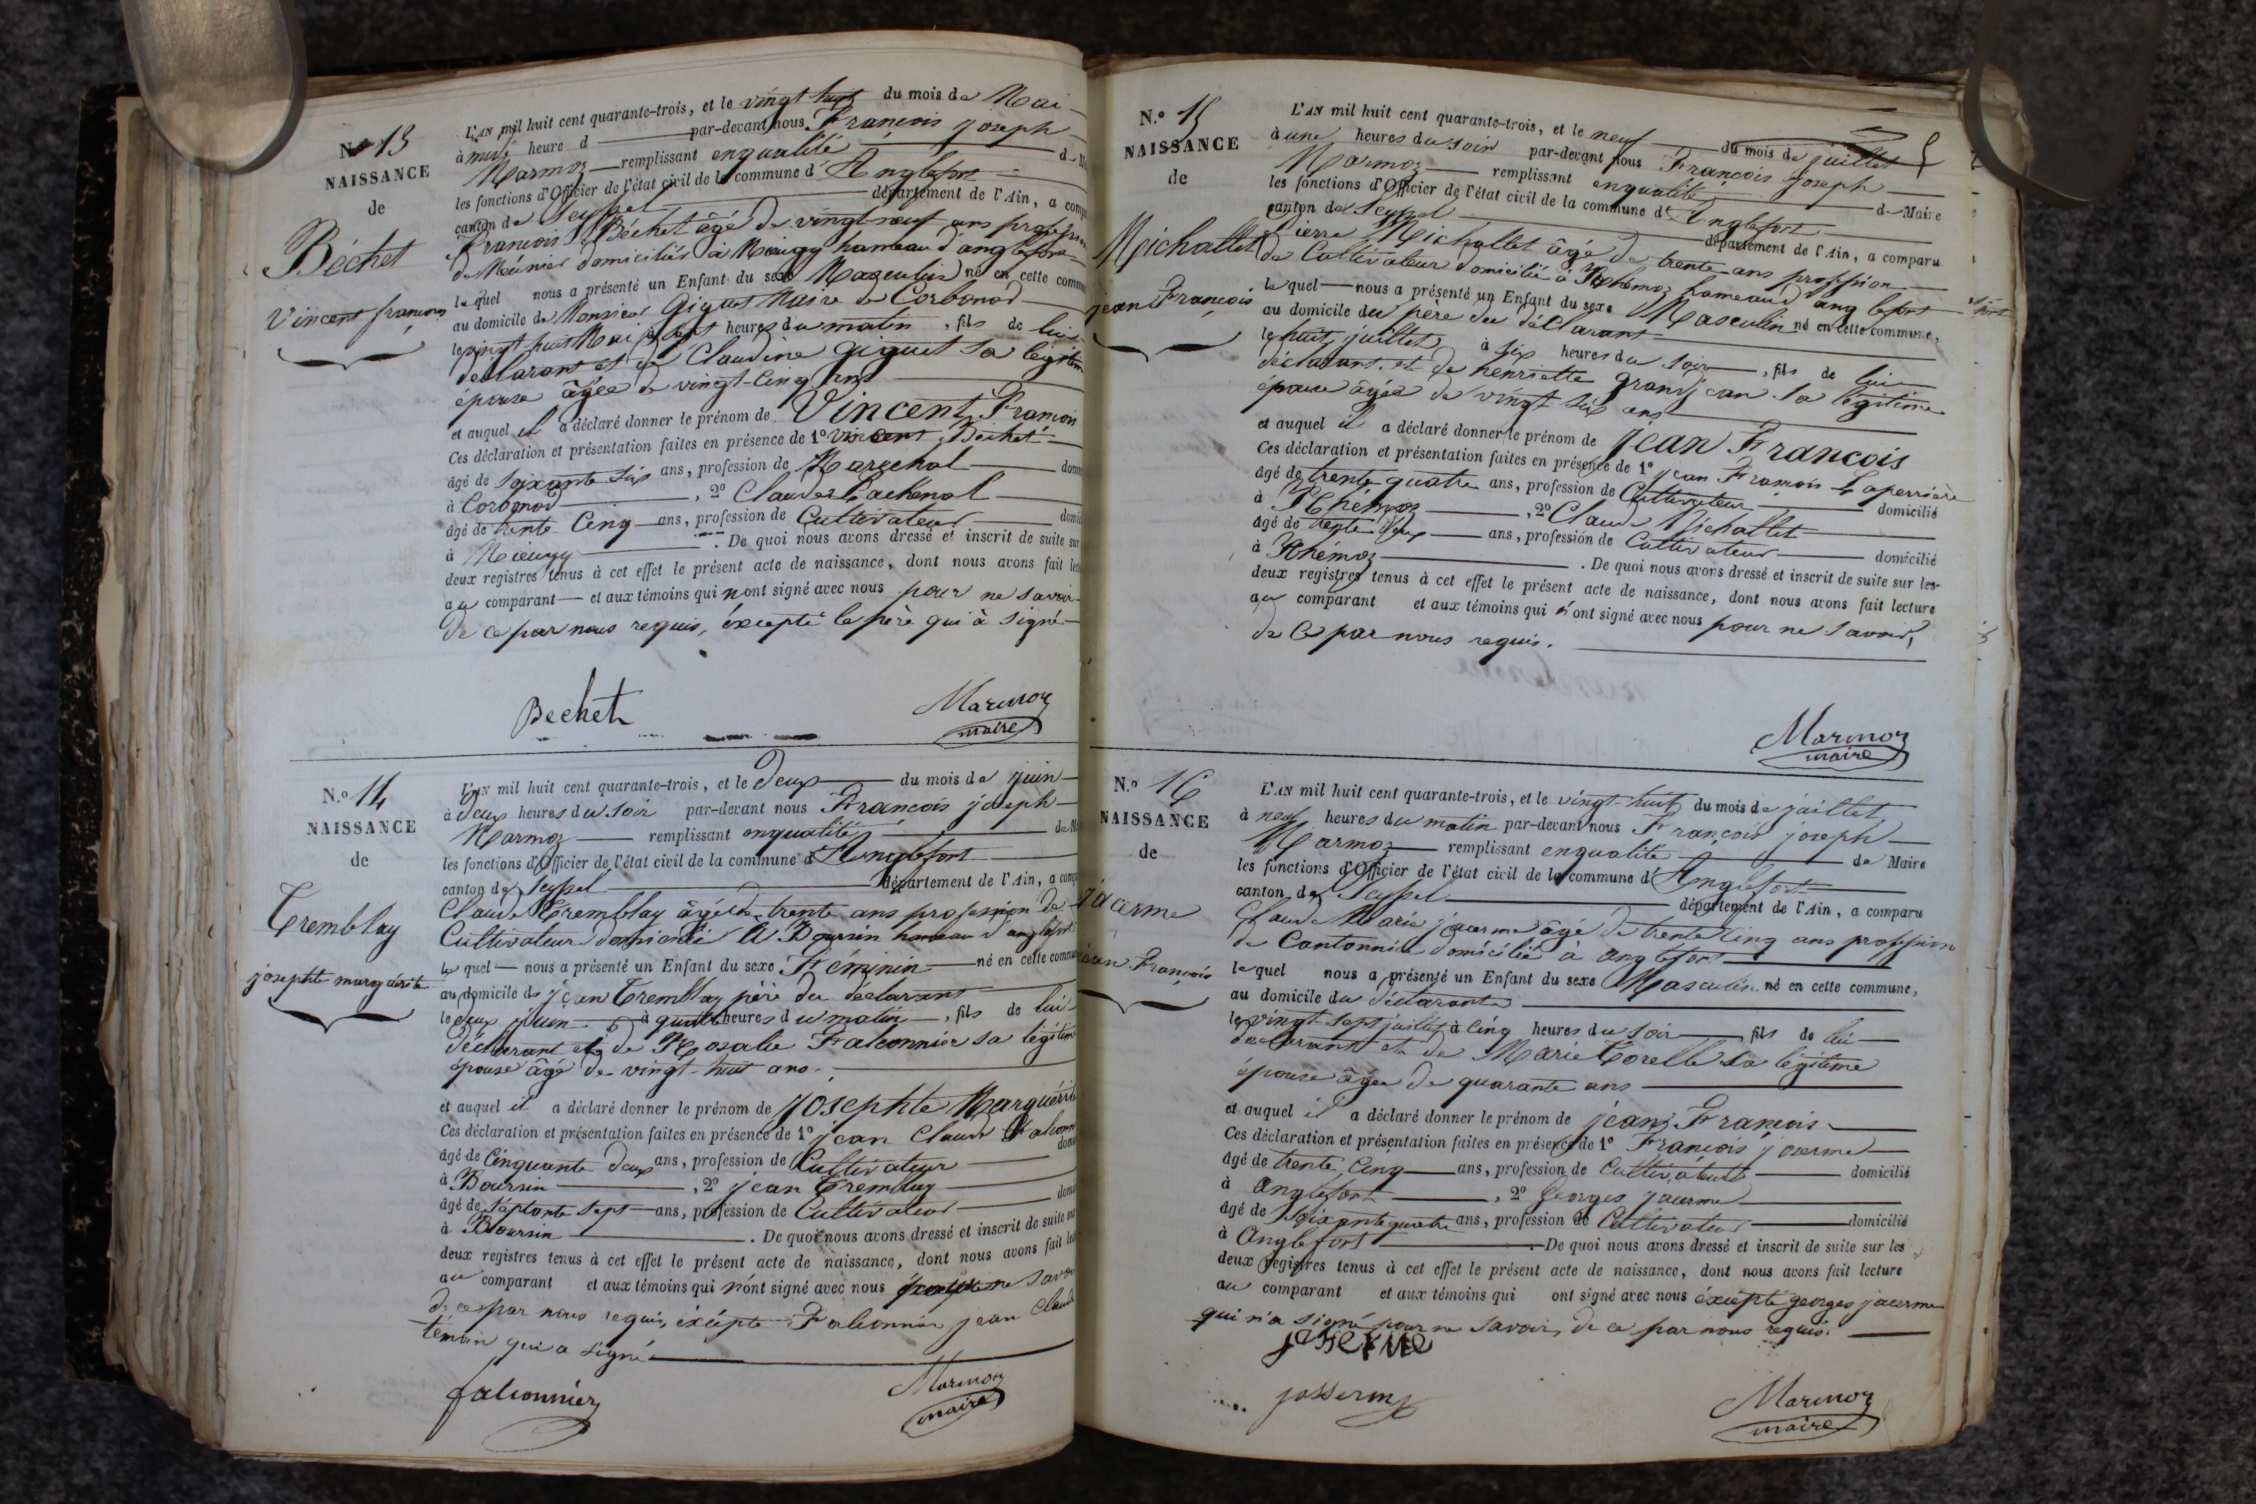 N.o 13
NAISSANCE
de
Béchet
Vincent françois
L'AN mil huit cent quarante-trois, et le vingt huit du mois de Mai
à heure d par-devant nous François joseph
Marmoz remplissant enqualité d
les fonctions d'Officier de l'état civil de la commune d'Anglefort
canton de Seyssel département de l'Ain, a comp
François Béchet âgé de vingt neuf ans profession
de Meûnier domicilié à Mieugy hameau d'anglefort
lequel nous a présenté un Enfant du sexe Masculin né en cette commu
au domicile de Monsieur Giguet Maire de Corbonod
le vingt huit Mai à sept heures du matin, fils de lui
déclarant et de Claudine Giguet sa légitime
épouse âgée de vingt-cinq ans
et auquel il a déclaré donner le prénom de Vincent François
Ces déclaration et présentation faites en présence de 1o Vincent Béchet
âgé de soixante six ans, profession de Marechal dom
à Corbonod, 2o Claude Lachenal
âgé de trente Cinq ans, profession de Cultivateur domi
à Mieugy. De quoi nous avons dressé et inscrit de suite sur
deux registres tenus à cet effet le présent acte de naissance, dont nous avons fait lect
au comparant et aux témoins qui n'ont signé avec nous pour ne savoir
de ce par nous requis, éxcepté le père qui à signé
Bechet
Marmoz
maire
N.o 14
NAISSANCE
de
Tremblay
josephte marguérite
L'AN mil huit cent quarante-trois, et le deux du mois de juin
à deux heures du soir par-devant nous François joseph
Marmoz remplissant enqualité de Ma
les fonctions d'Officier de l'état civil de la commune d'Anglefort
canton de Seyssel département de l'Ain, a comp
Claude Tremblay âgé de trente ans profession de
Cultivateur domicilié à Boursin hameau d'anglefort
lequel nous a présenté un Enfant du sexe Féminin né en cette commune
au domicile de jean Tremblay père du déclarant
le deux juin à quatre heures du matin, fils de lui
déclarant et de Rosalie Falconnier sa légitime
épouse âgé de vingt-huit ans.
et auquel il a déclaré donner le prénom de josephte Marguérite
Ces déclaration et présentation faites en présence de 1o jean Claude Falconn
âgé de Cinquante deux ans, profession de Cultivateur dom
à Boursin, 2o jean Tremblay
âgé de séptante sept ans, profession de Cultivateur domi
à Boursin. De quoi nous avons dressé et inscrit de suite sur
deux registres tenus à cet effet le présent acte de naissance, dont nous avons fait lec
au comparant et aux témoins qui n'ont signé avec nous pour ne savoir
de ce par nous requis, éxcépté Falconnier jean Claude
témoin qui a signé
falconnier
Marmoz
maire
N.o 15
NAISSANCE
de
Michallet
jean François
L'AN mil huit cent quarante-trois, et le neuf du mois de juillet
à une heures du soir par-devant nous François joseph
Marmoz remplissant enqualité de Maire
les fonctions d'Officier de l'état civil de la commune d'Anglefort
canton de Seyssel département de l'Ain, a comparu
Pierre Michallet âgé de trente ans profession
de Cultivateur domicilié à Rhémoz hameau d'anglefort
lequel nous a présenté un Enfant du sexe Masculin né en cette commune,
au domicile du père du déclarant
le huit juillet à six heures du soir, fils de lui
déclarant et de henriette grandjean sa légitime
épouse âgée de vingt six ans
et auquel il a déclaré donner le prénom de jean François
Ces déclaration et présentation faites en présence de 1o jean François Laperrière
âgé de trente quatre ans, profession de Cultivateur domicilié
à Rhémoz, 2o Claude Michallet
âgé de trente deux ans, profession de Cultivateur domicilié
à Rhémoz. De quoi nous avons dressé et inscrit de suite sur les
deux registres tenus à cet effet le présent acte de naissance, dont nous avons fait lecture
au comparant et aux témoins qui n'ont signé avec nous pour ne savoir,
de ce par nous requis.
Marmoz
maire
N.o 16
NAISSANCE
de
jacerme
jean François
L'AN mil huit cent quarante-trois, et le vingt-huit du mois de juillet
à neuf heures du matin par-devant nous François joseph
Marmoz remplissant enqualité de Maire
les fonctions d'Officier de l'état civil de la commune d'Anglefort
canton de Seyssel département de l'Ain, a comparu
Claude Marie jacerme âgé de trente cinq ans profession
de Cantonnier domicilié à anglefort
lequel nous a présenté un Enfant du sexe Masculin né en cette commune,
au domicile du déclarant
le vingt-sept juillet à cinq heures du soir, fils de lui
déclarant et de Marie Torelle sa légitime
épouse âgée de quarante ans
et auquel il a déclaré donner le prénom de jean François
Ces déclaration et présentation faites en présence de 1o François jacerme
âgé de trente cinq ans, profession de Cultivateur domicilié
à anglefort, 2o georges jacerme
âgé de soixante quatre ans, profession de Cultivateur domicilié
à Anglefort. De quoi nous avons dressé et inscrit de suite sur les
deux registres tenus à cet effet le présent acte de naissance, dont nous avons fait lecture
au comparant et aux témoins qui ont signé avec nous éxcépté georges jacerme
qui n'a signé pour ne savoir, de ce par nous requis.
Marmoz
maire